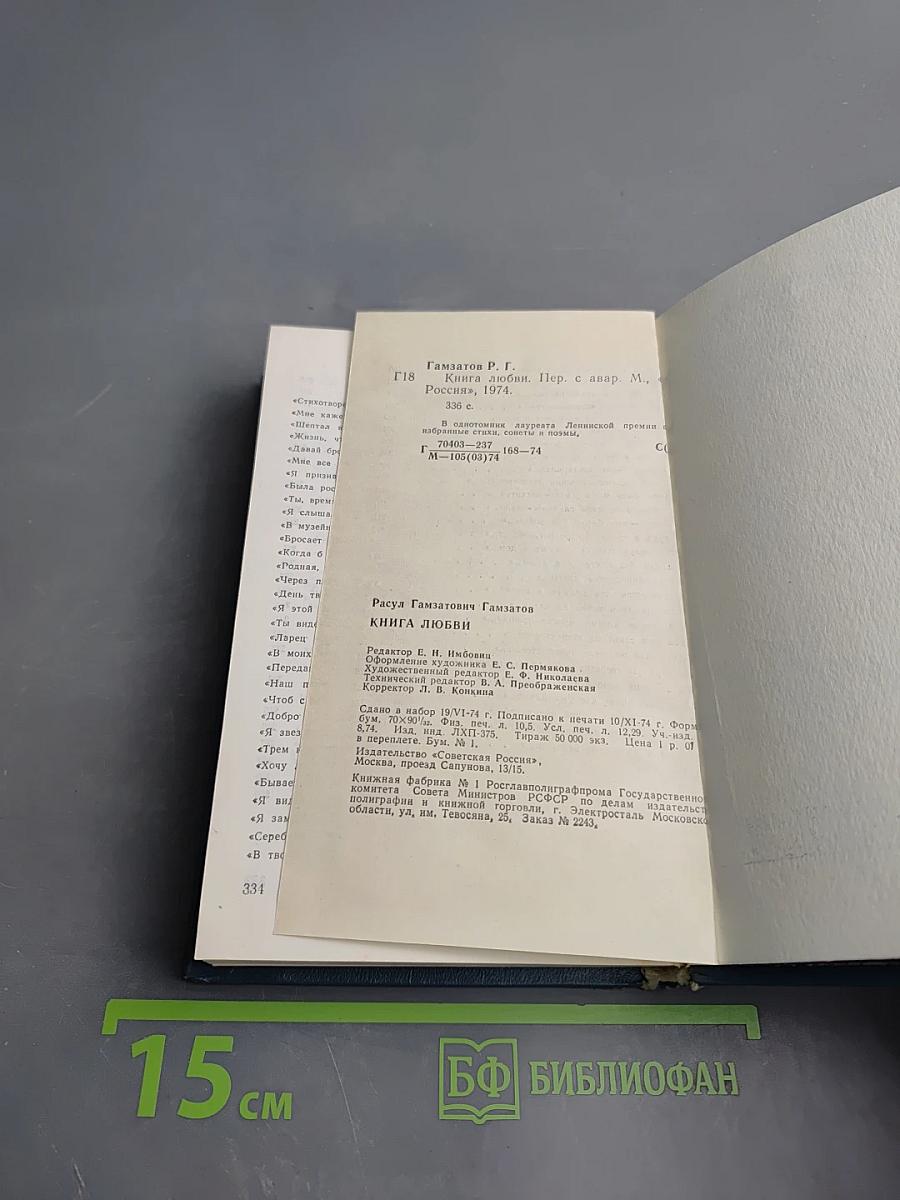 «Стихотворе
«Мне каже
«Шептал
«Жизнь, чт
«Давай бро
«Мне все
«Я призна
«Была рос
«Ты, врем
«Я слыша
«В музейн
«Бросает
«Когда б
«Родная,
«Через п
«День тв
«Я этой
«Ты виде
«Ларец
«В моих
«Передай
«Наш п
«Чтоб с
«Добро
«Я звез
«Трем
«Хочу
«Бывае
«Я вид
«Я зам
«Сереб
«В тво
334
Гамзатов Р. Г.
Г18 Книга любви. Пер. с авар. М., «
Россия», 1974.
336 с.
В однотомник лауреата Ленинской премии
избранные стихи, сонеты и поэмы,
Г 70403—237 168—74 С(
М—105(03)74
Расул Гамзатович Гамзатов
КНИГА ЛЮБВИ
Редактор Е. Н. Имбовиц
Оформление художника Е. С. Пермякова
Художественный редактор Е. Ф. Николаева
Технический редактор В. А. Преображенская
Корректор Л. В. Конкина
Сдано в набор 19/VI-74 г. Подписано к печати 10/XI-74 г. Форм
бум. 70×90¹/₃₂. Физ. печ. л. 10,5. Усл. печ. л. 12,29. Уч.-изд.
8,74. Изд. инд. ЛХП-375. Тираж 50 000 экз. Цена 1 р. 01
в переплете. Бум. № 1.
Издательство «Советская Россия»,
Москва, проезд Сапунова, 13/15.
Книжная фабрика № 1 Росглавполиграфпрома Государственно
комитета Совета Министров РСФСР по делам издательст
полиграфии и книжной торговли, г. Электросталь Московско
области, ул. им. Тевосяна, 25. Заказ № 2243.
15 см
БФ БИБЛИОФАН